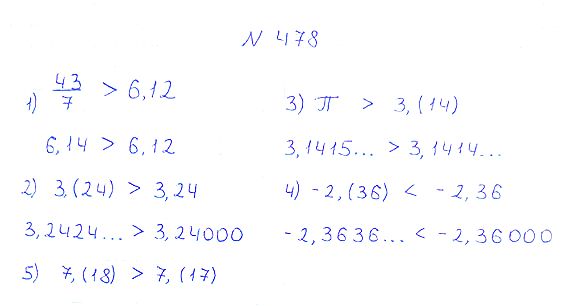 N 478
1) 43/7 > 6,12
6,14 > 6,12
2) 3,(24) > 3,24
3,2424... > 3,24000
5) 7,(18) > 7,(17)
3) π > 3,(14)
3,1415... > 3,1414...
4) -2,(36) < -2,36
-2,3636... < -2,36000